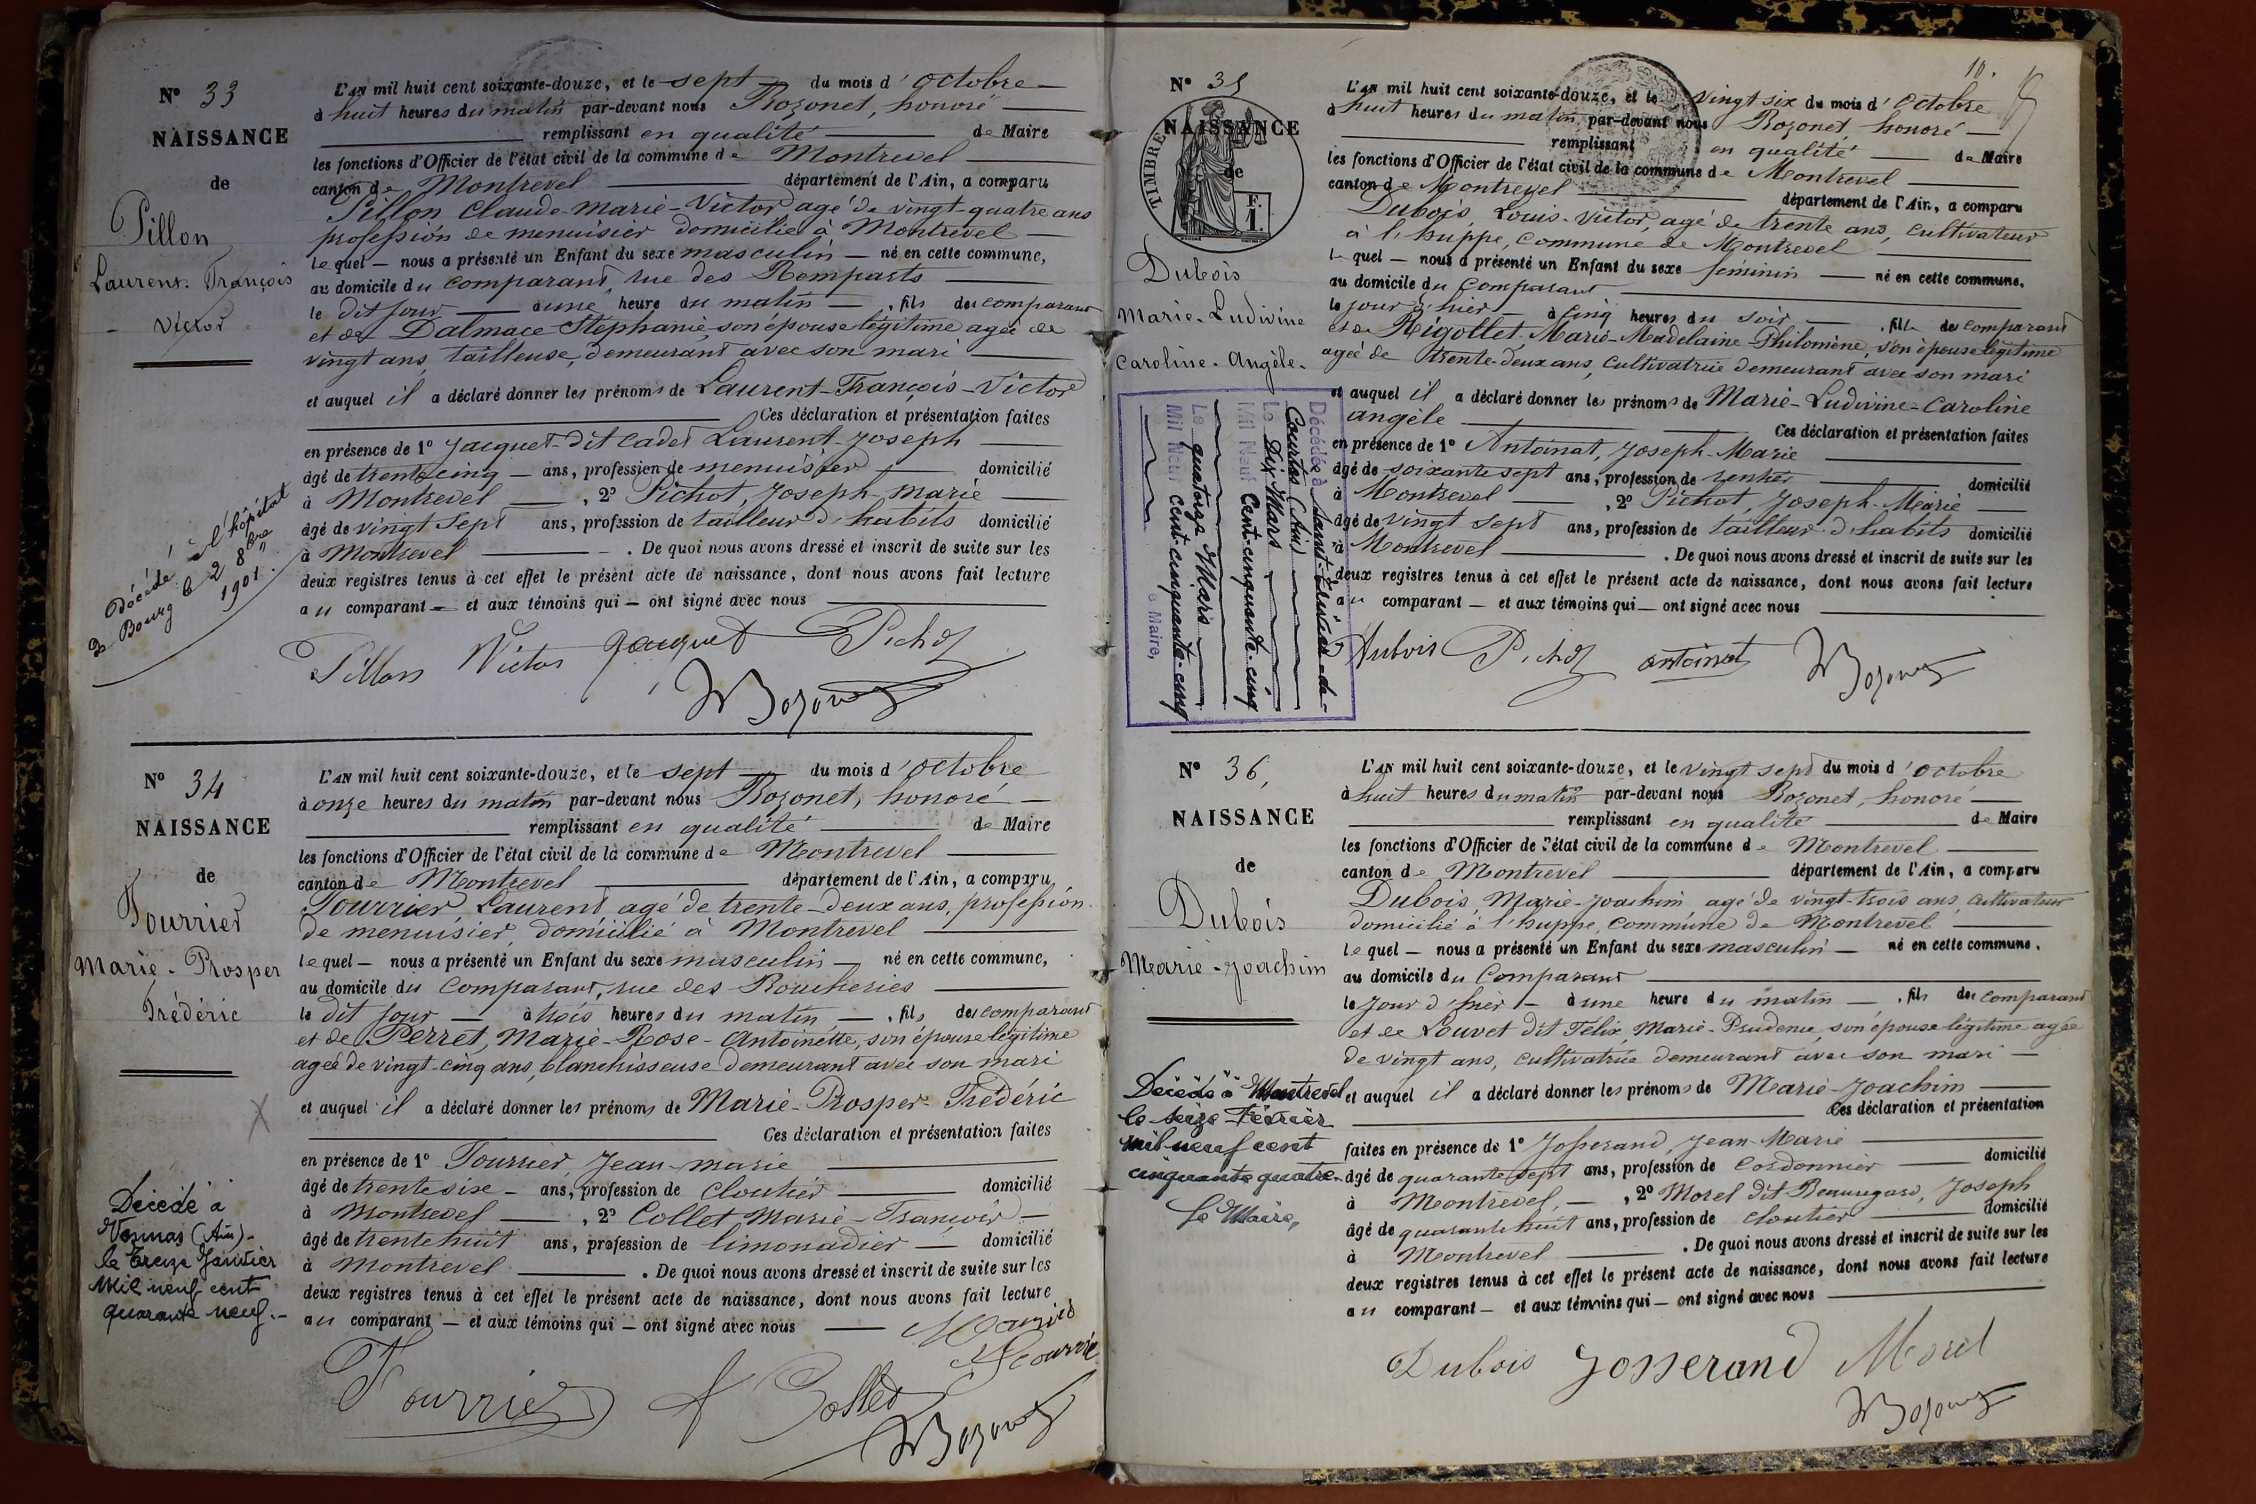 N° 33
NAISSANCE
de
Pillon
Laurent-François
Victor
Décédé à l'hôpital
de Bourg le 2 8bre
1901.
L'AN mil huit cent soixante-douze, et le sept du mois d'octobre
à huit heures du matin par-devant nous Bozonet, honoré
remplissant en qualité de Maire
les fonctions d'Officier de l'état civil de la commune de Montrevel
canton de Montrevel département de l'Ain, a comparu
Pillon Claude-Marie-Victor agé de vingt-quatre ans
profession de menuisier domicilié à Montrevel
lequel — nous a présenté un Enfant du sexe masculin — né en cette commune,
au domicile du comparant, rue des Remparts
le dit jour à une heure du matin, fils du comparant
et de Dalmace Stéphanie, son épouse légitime agée de
vingt ans, tailleuse, demeurant avec son mari
et auquel il a déclaré donner les prénoms de Laurent-François-Victor
Ces déclaration et présentation faites
en présence de 1° Jacquet dit Cadet Laurent-Joseph
âgé de trente cinq ans, profession de menuisier domicilié
à Montrevel, 2° Pichot, Joseph-Marie
âgé de vingt sept ans, profession de tailleur d'habits domicilié
à Montrevel. De quoi nous avons dressé et inscrit de suite sur les
deux registres tenus à cet effet le présent acte de naissance, dont nous avons fait lecture
au comparant — et aux témoins qui — ont signé avec nous
Pillon Victor Jacquet Pichot
Bozonet
N° 34
NAISSANCE
de
Fourrier
Marie-Prosper
Frédéric
Décédé à
(Ain)
le treize Janvier
Mil neuf cent
quarante neuf.-
L'AN mil huit cent soixante-douze, et le sept du mois d'octobre
à onze heures du matin par-devant nous Bozonet, honoré
remplissant en qualité de Maire
les fonctions d'Officier de l'état civil de la commune de Montrevel
canton de Montrevel département de l'Ain, a comparu
Fourrier, Laurent agé de trente-deux ans, profession
de menuisier, domicilié à Montrevel
lequel — nous a présenté un Enfant du sexe masculin — né en cette commune,
au domicile du comparant, rue des Boucheries
le dit jour — à trois heures du matin —, fils du comparant
et de Perret, Marie-Rose-Antoinette, son épouse légitime
agée de vingt-cinq ans, blanchisseuse demeurant avec son mari
et auquel il a déclaré donner les prénoms de Marie-Prosper-Frédéric
Ces déclaration et présentation faites
en présence de 1° Fourrier, Jean-Marie
âgé de trente six — ans, profession de cloutier domicilié
à Montrevel, 2° Collet Marie-François
âgé de trente huit ans, profession de limonadier — domicilié
à Montrevel. De quoi nous avons dressé et inscrit de suite sur les
deux registres tenus à cet effet le présent acte de naissance, dont nous avons fait lecture
au comparant — et aux témoins qui — ont signé avec nous
Fourrier Collet
Bozonet
10.
N° 35
TIMBRE
F.
1.
NAISSANCE
de
Dubois
Marie-Ludivine
Caroline-Angèle.
Décédée à Saint-Étienne-de-
(Ain)
Le Dix Mars
Mil Neuf Cent-cinquante-cinq
Le quatorze Mars
Mil Neuf Cent-cinquante-cinq
Le Maire,
L'AN mil huit cent soixante-douze, et le vingt six du mois d'octobre
à huit heures du matin par-devant nous Bozonet, honoré
remplissant en qualité de Maire
les fonctions d'Officier de l'état civil de la commune de Montrevel
canton de Montrevel département de l'Ain, a comparu
Dubois, Louis-Victor, agé de trente ans, cultivateur
à l'huppe, commune de Montrevel
lequel — nous a présenté un Enfant du sexe féminin — né en cette commune,
au domicile du comparant
le jour d'hier — à cinq heures du soir —, fille du comparant
et de Rigollet Marie-Madelaine-Philomène, son épouse légitime
agée de trente-deux ans, cultivatrice demeurant avec son mari
et auquel il a déclaré donner les prénoms de Marie-Ludivine-Caroline
angèle Ces déclaration et présentation faites
en présence de 1° Antoinat, Joseph-Marie
âgé de soixante sept ans, profession de rentier domicilié
à Montrevel, 2° Pichot, Joseph-Marie
âgé de vingt sept ans, profession de tailleur d'habits domicilié
à Montrevel. De quoi nous avons dressé et inscrit de suite sur les
deux registres tenus à cet effet le présent acte de naissance, dont nous avons fait lecture
au comparant — et aux témoins qui — ont signé avec nous
Dubois Pichot antoinat Bozonet
N° 36,
NAISSANCE
de
Dubois
Marie-Joachim
Décédé à Montrevel
le seize Février
mil neuf cent
cinquante quatre.
Le Maire,
L'AN mil huit cent soixante-douze, et le vingt sept du mois d'octobre
à huit heures du matin par-devant nous Bozonet, honoré
remplissant en qualité de Maire
les fonctions d'Officier de l'état civil de la commune de Montrevel
canton de Montrevel département de l'Ain, a comparu
Dubois, Marie-Joachim agé de vingt-trois ans, cultivateur
domicilié à l'huppe, commune de Montrevel
lequel — nous a présenté un Enfant du sexe masculin — né en cette commune,
au domicile du Comparant
le jour d'hier — à une heure du matin —, fils du comparant
et de Louvet dit Félix, Marie-Prudence, son épouse légitime agée
de vingt ans, cultivatrice demeurant avec son mari —
et auquel il a déclaré donner les prénoms de Marie-Joachim
Ces déclaration et présentation
faites en présence de 1° Josserand, Jean-Marie
âgé de quarante sept ans, profession de cordonnier domicilié
à Montrevel, —, 2° Morel dit Beauregard, Joseph
âgé de quarante huit ans, profession de cloutier domicilié
à Montrevel. De quoi nous avons dressé et inscrit de suite sur les
deux registres tenus à cet effet le présent acte de naissance, dont nous avons fait lecture
au comparant — et aux témoins qui — ont signé avec nous
Dubois Josserand Morel
Bozonet